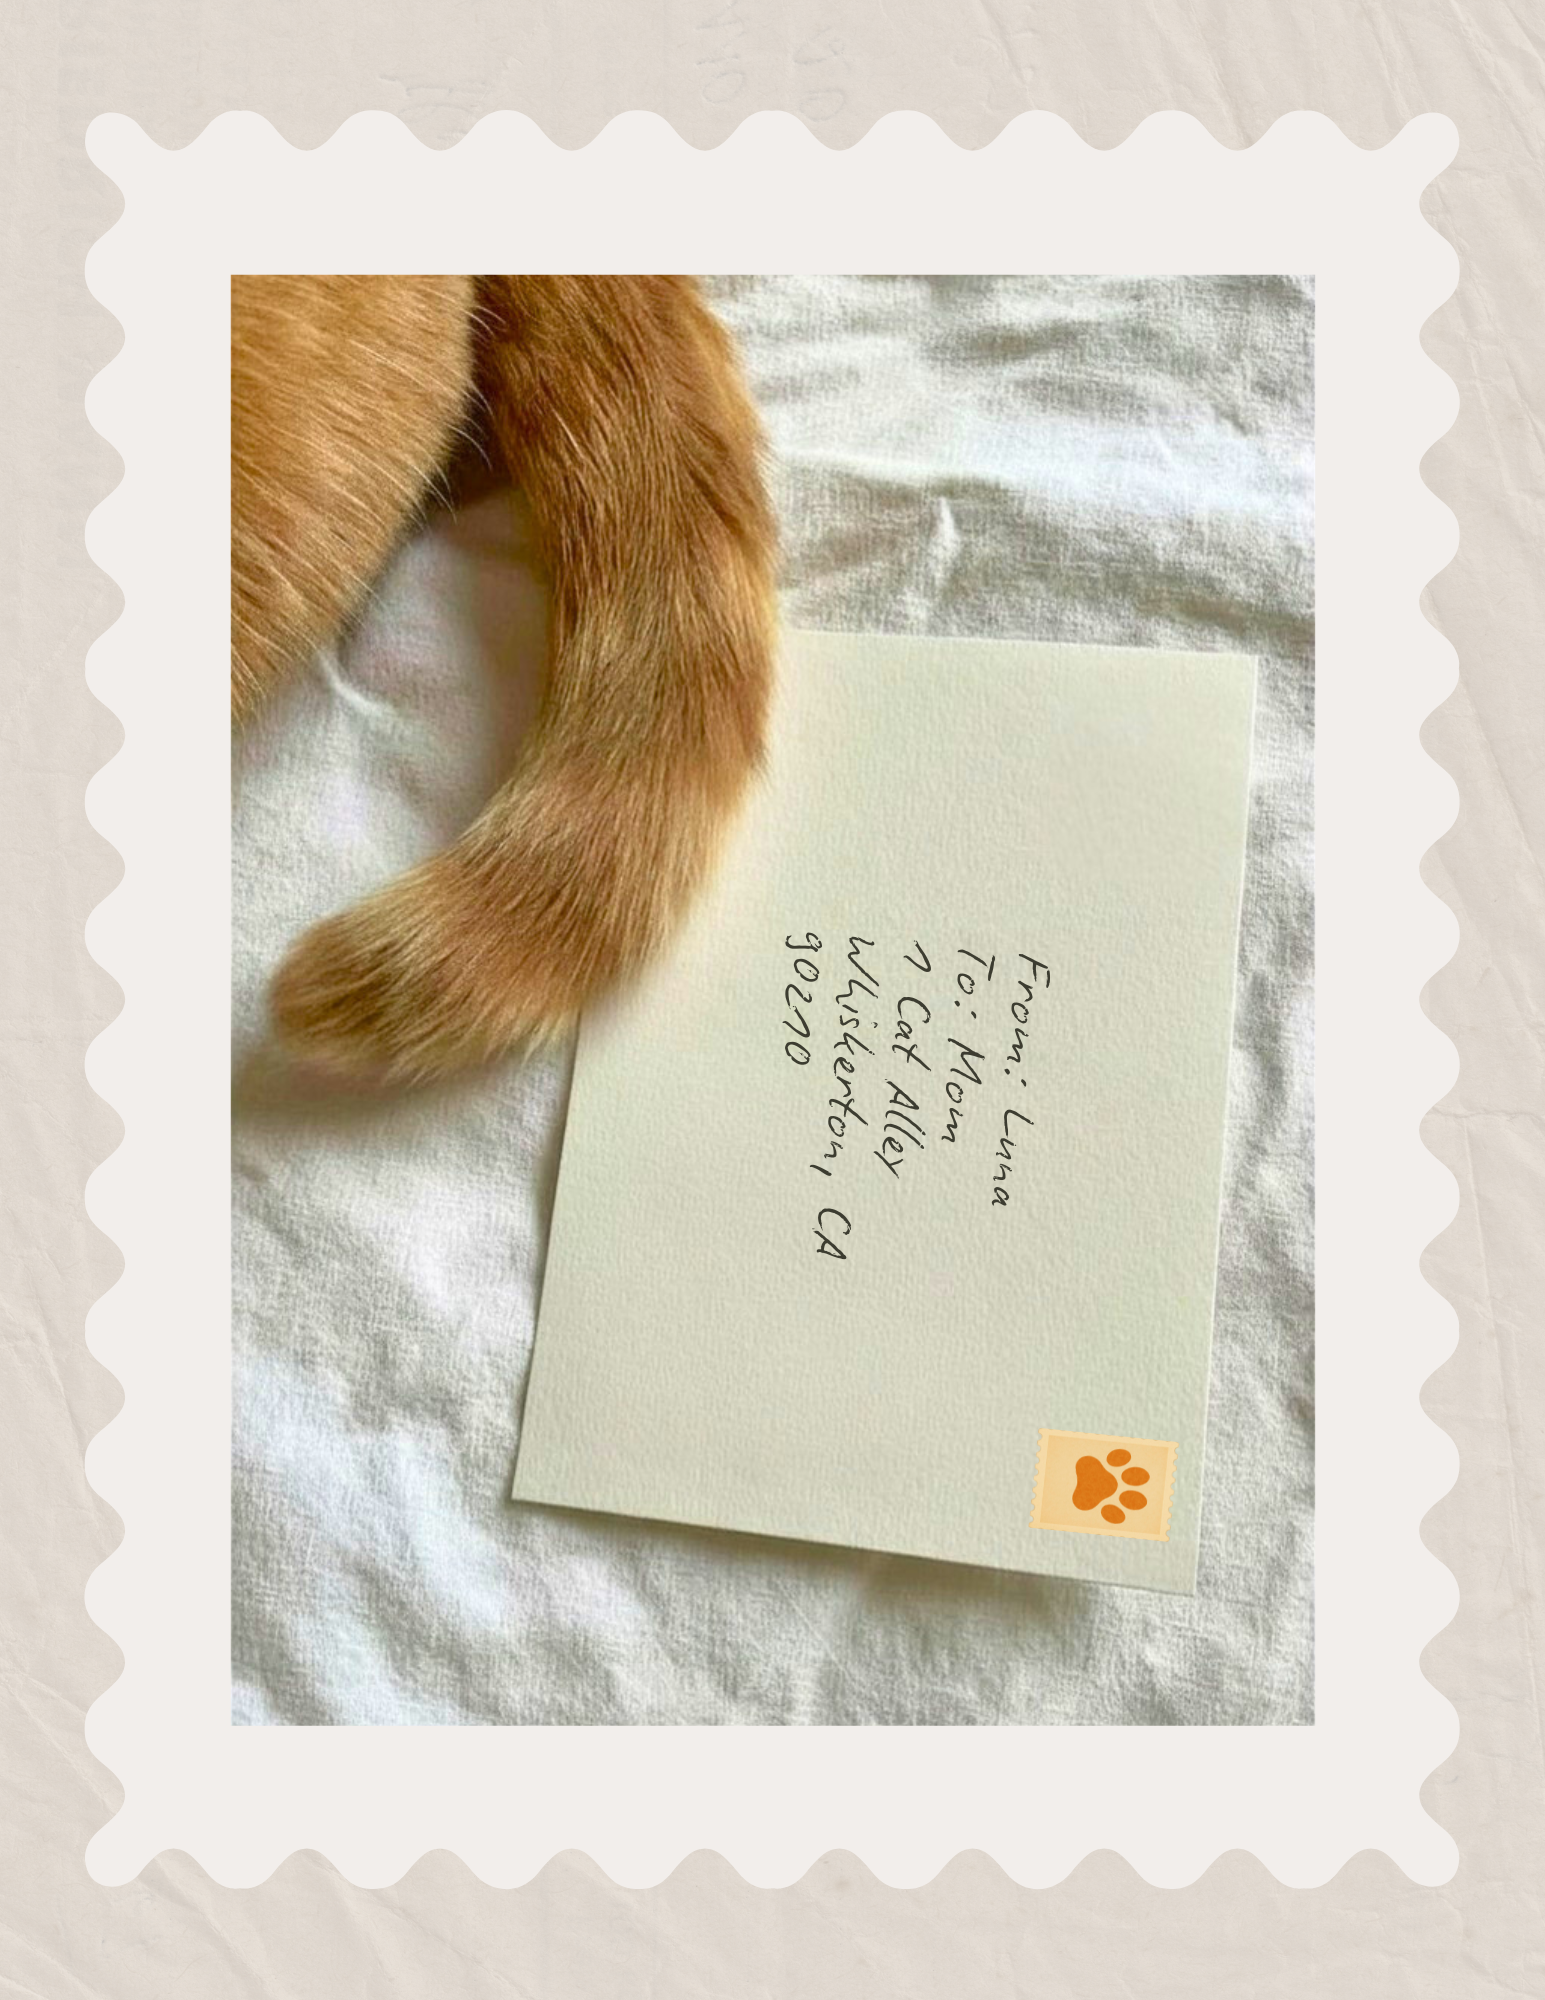 From: Luna
To: Mom
1 Cat Alley
Whiskerton, CA
90210